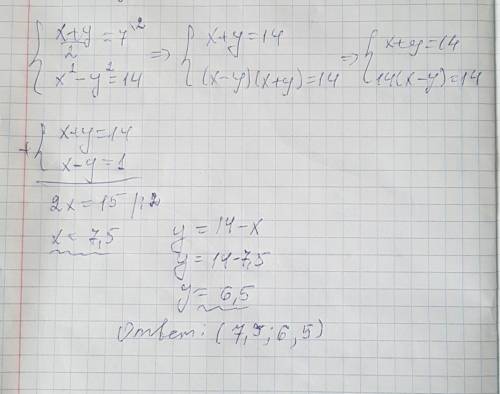 { (x+y)/2 = 7 |·2 => { x+y=14 => { x+y=14
{ x²-y²=14 { (x-y)(x+y)=14 { 14(x-y)=14
+ { x+y=14
{ x-y=1
2x=15 |:2
x=7,5
y=14-x
y=14-7,5
y=6,5
Ответ: (7,5; 6,5)